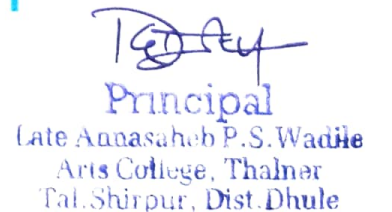 Principal
Late Annasaheb P.S.Wadile
Arts College, Thalner
Tal.Shirpur, Dist.Dhule